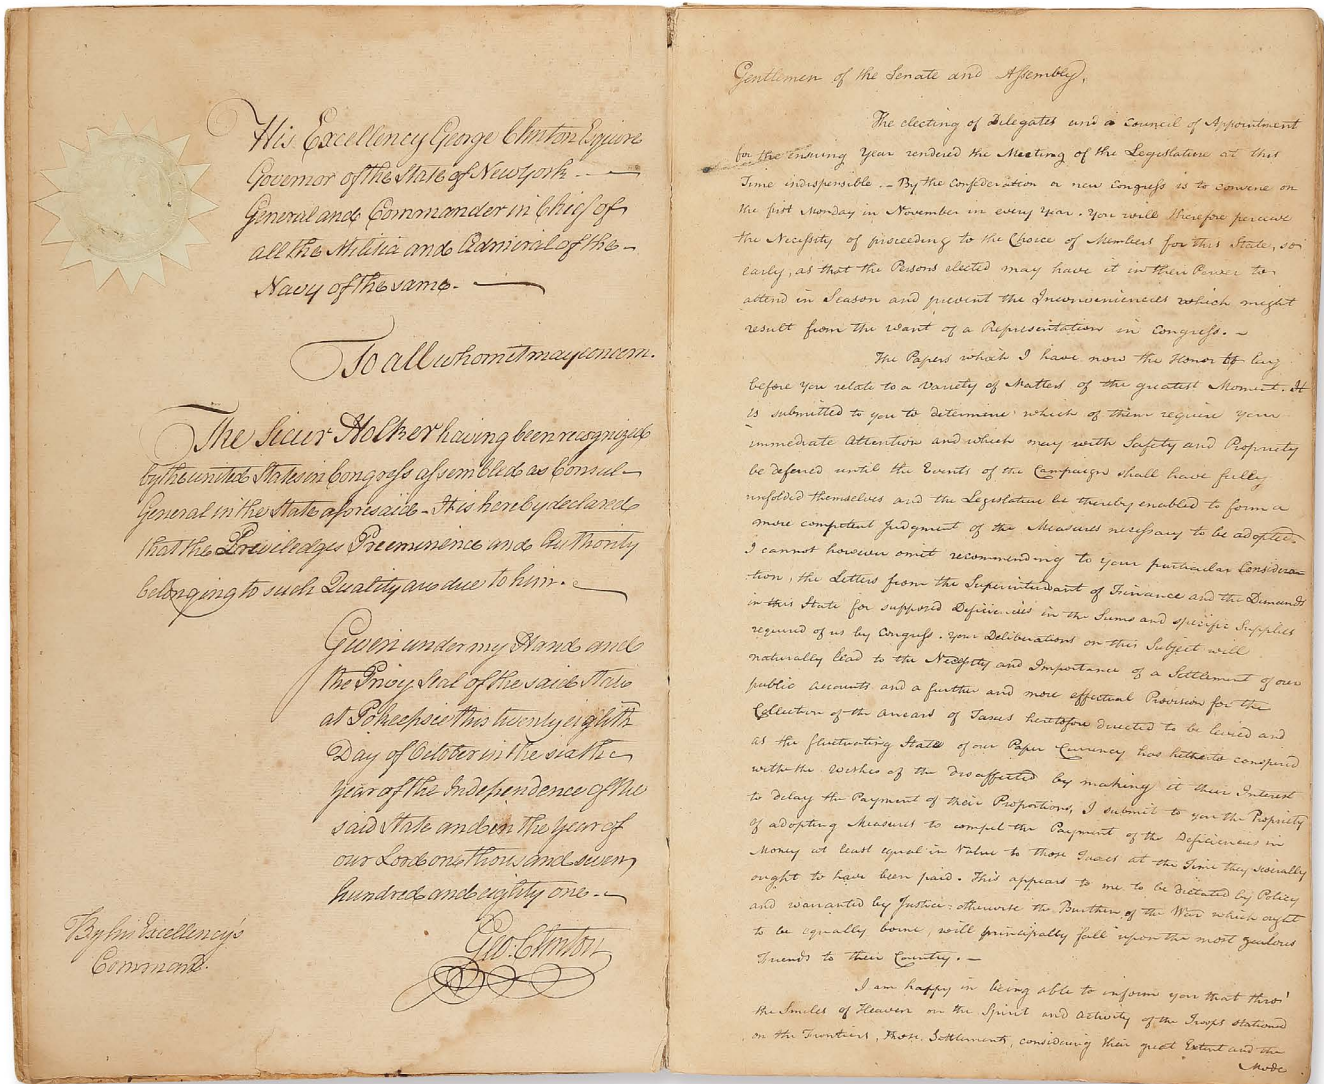 His Excellency George Clinton Esquire
Governor of the State of New York. —
General and Commander in Chief of
all the Militia and Admiral of the —
Navy of the same. —
To all whom it may concern.
The Sieur Holker having been recognized
by the united States in Congress assembled as Consul
General in the State aforesaid — It is hereby declared
that the Priviledges Preeminence and Authority
belonging to such Quality are due to him. —
Given under my Hand and
the Privy Seal of the said State
at Pokeepsie this twenty eighth
Day of October in the sixth
Year of the Independence of the
said State and in the Year of
our Lord one thousand seven
hundred and eighty one. —
Geo. Clinton
By his Excellency's
Command.
Gentlemen of the Senate and Assembly,
The electing of Delegates and a Council of Appointment
for the ensuing Year rendered the Meeting of the Legislature at this
Time indispensible. — By the Confederation a new Congress is to convene on
the first Monday in November in every Year. You will therefore perceive
the Necessity of proceeding to the Choice of Members for this State, so
early, as that the Persons elected may have it in their Power to
attend in Season and prevent the Inconveniencies which might
result from the want of a Representation in Congress. —
The Papers which I have now the Honor to lay
before you relate to a Variety of Matters of the greatest Moment. It
is submitted to you to determine which of them require your
immediate Attention and which may with Safety and Propriety
be defered until the Events of the Campaign shall have fully
unfolded themselves and the Legislature be thereby enabled to form a
more competent Judgment of the Measures necessary to be adopted.
I cannot however omit recommending to your particular Considera-
tion, the Letters from the Superintendant of Finance and the Demands
in this State for supposed Deficiencies in the Sums and specific Supplies
required of us by Congress. Your Deliberations on this Subject will
naturally lead to the Necessity and Importance of a Settlement of our
public Accounts and a further and more effectual Provision for the
Collection of the Arrears of Taxes heretofore directed to be levied and
as the fluctuating State of our Paper Currency has hitherto conspired
with the Wishes of the Disaffected by making it their Interest
to delay the Payment of their Proportions, I submit to you the Propriety
of adopting Measures to compel the Payment of the Deficiencies in
Money at least equal in Value to those Taxes at the Time they severally
ought to have been paid. This appears to me to be dictated by Policy
and warranted by Justice: otherwise the Burthen of the War which ought
to be equally borne, will principally fall upon the most zealous
Friends to their Country. —
I am happy in being able to inform you that thro'
the Smiles of Heaven on the Spirit and Activity of the Troops stationed
on the Frontiers, those Settlements, considering their great Extent and the
Mode